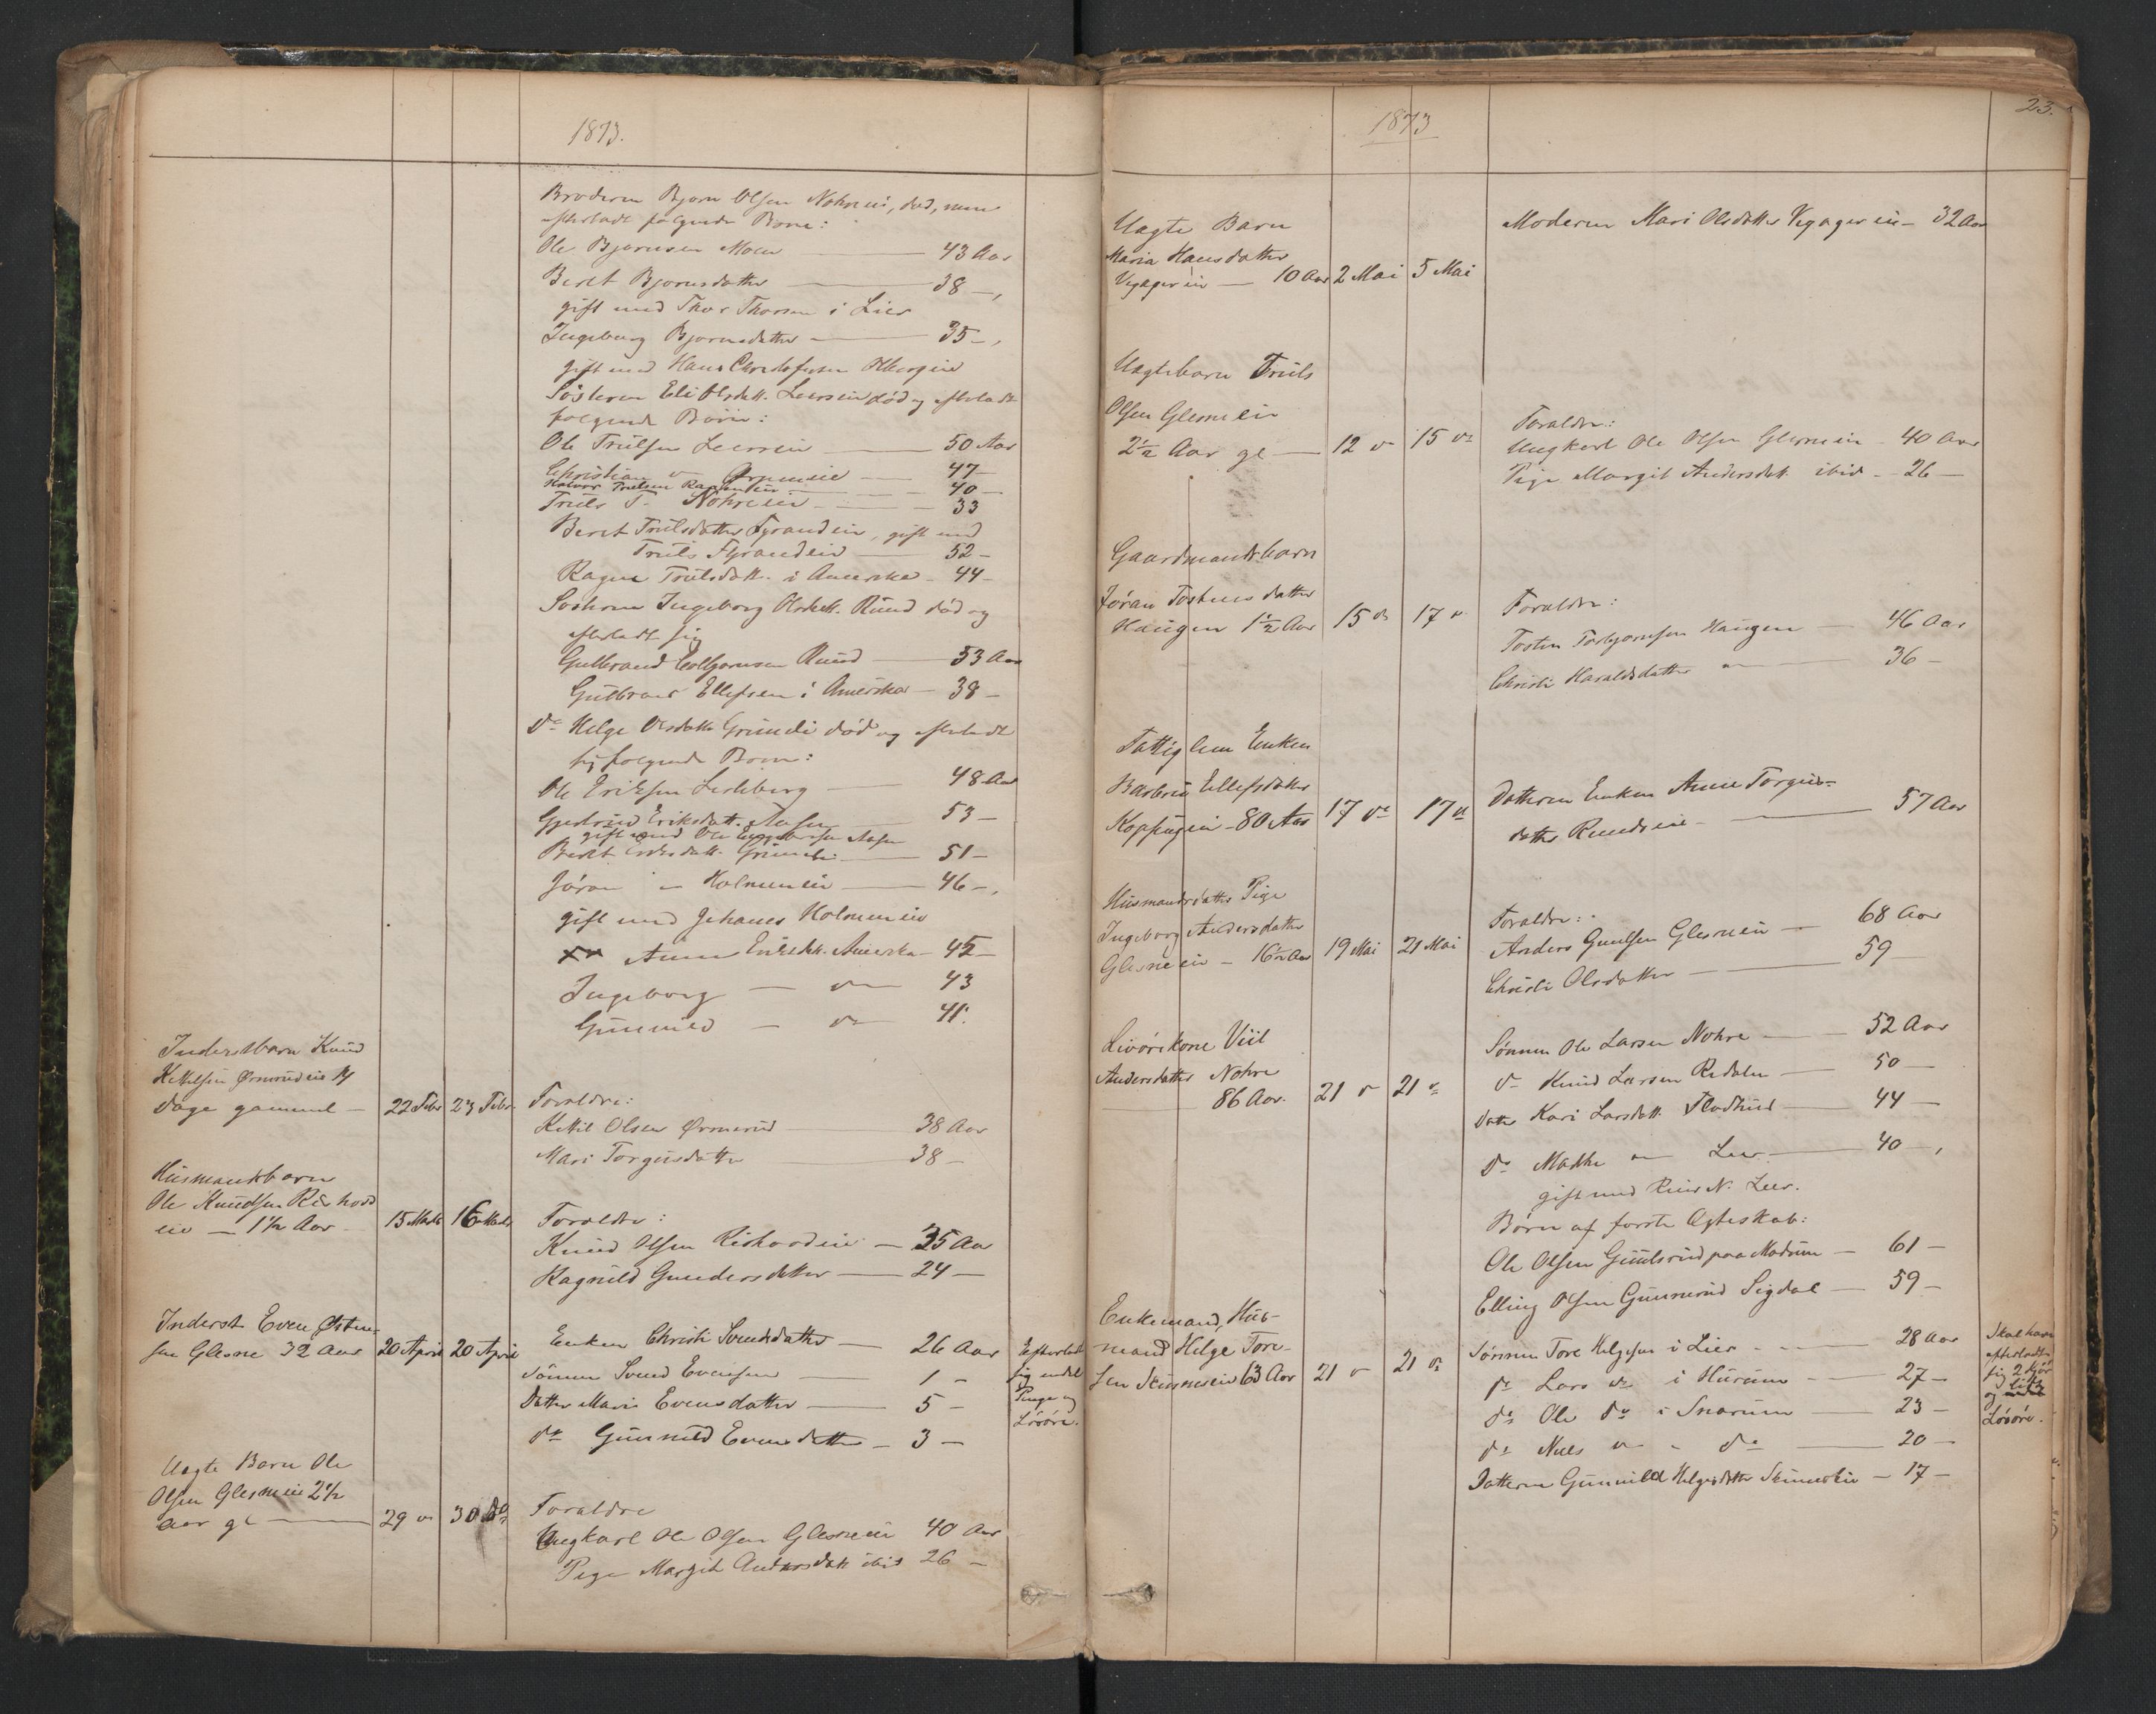 1873.
Broderen Bjørn Olsen Nohreei, død, men
efterladt følgende Børn:
Ole Bjørnsen Moen — 43 Aar
Beret Bjørnsdatter — 38 —,
gift med Thor Thorsen i Lier
Ingeborg Bjørnsdatter — 35 —,
gift med Hans Christofersen
Søsteren Eli Olsdatt. Leerseie død og efterladt
følgende Børn:
Ole Trulsen Leerseie — 50 Aar
Christian — 47 —
Halvor Trulsen — 40 —
Truls T. Nohreeie — 33
Beret Trulsdatter Fyrandeie, gift med
Truls Fyrandeie — 52 —
Ragne Trulsdatt. i Amerika — 44 —
Søsteren Ingeborg Olsdatt. Ruud død og
efterladt sig
Gulbrand Ruud — 53 Aar
Gulbrand Ellefsen i Amerika — 38 —
do Helge Olsdatter død og efterladt
sig følgende Børn:
Ole Eriksen — 48 Aar
Gjertrud Eriksdatt. Aasen — 53 —
gift med Ole Aasen
Beret Eriksdatt. — 51 —
Jøran — Holmeneie — 46 —,
gift med Johanes Holmeneie
Anne Eriksdatt. Amerika — 45 —
Ingeborg — do — 43
Gunnild — do — 41.
Inderstbarn Knud
Kittelsen Ørmerudeie 14
dage gammel — 22 Febr 23 Febr Foraldre:
Kittil Olsen Ørmerud — 38 Aar
Mari Torgusdatter — 38 —
Husmandsbarn
Ole Knudsen Rishovd
eie — 1½ Aar 15 Marts 16 Marts Foraldre:
Knud Olsen Rishovdeie — 35 Aar
Ragnild Gundersdatter — 24 —
Inderst Even Østen
sen Glesne 32 Aar 20 April 20 April Enken Christi Svendsdatter — 26 Aar
Sønnen Svend Evensen — 1 —
Datter Mari Evensdatter — 5 —
do Gunnild Evensdatter — 3 —
Efterladt
sig endel
Penge og
Løsøre.
Uægte Barn Ole
Olsen Glesneeie 2½
Aar gl — 29 do 30 do Foraldre
Ungkarl Ole Olsen Glesneeie 40 Aar
Pige Margit Andersdatt ibid 26 —
23.
1873
Uægte Barn
Maria Hansdatter
Vegagereie — 10 Aar 2 Mai 5 Mai
Moderen Mari Olsdatter Vegagereie — 32 Aar
Uægtebarn Truls
Olsen Glesneeie
2½ Aar gl — 12 do 15 do
Foraldre:
Ungkarl Ole Olsen Glesneeie — 40 Aar
Pige Margit Andersdatt. ibid — 26 —
Gaardmandsbarn
Jøran Tostensdatter
Haugen 1½ Aar 15 do 17 do
Foraldre:
Tosten Torbjørnsen Haugen — 46 Aar
Christi Haraldsdatter — 36 —
Fattiglem Enken
Barbru Ellefsdatter
Koppngeie — 80 Aar 17 do 17 do
Datteren Enken Anne Torgus-
datter Ruudseie — 57 Aar
Husmandsdatter Pige
Ingeborg Andersdatter
Glesneeie — 16½ Aar 19 Mai 21 Mai
Foraldre:
Anders Guulsen Glesneeie — 68 Aar
Christi Olsdatter — 59 —
Livørekone Viil
Andersdatter Nohre
86 Aar. 21 do 21 do
Sønnen Ole Larsen Nohre — 52 Aar
do Knud Larsen Redalen — 50 —
Datter Kari Larsdatt. Flodhud — 44 —
do Mathe — Leer — 40 —,
gift med Knud N. Leer.
Børn af første Ægteskab:
Ole Olsen Guulsrud paa Modum — 61 —
Elling Olsen Gunnerud Sigdal — 59 —
Enkemand, Hus-
mand Helge Tore-
sen Skinneseie 63 Aar 21 do 21 do
Sønnen Tore Helgesen i Lier — 28 Aar
do Lars do i Hurum — 27 —
do Ole do i Snarum — 23 —
do Niels do — do — 20 —
Datteren Gunnild Helgesdatter Skinneseie — 17 —
Skal have
efterladt
sig 2 Kjør
og lidt
Løsøre.